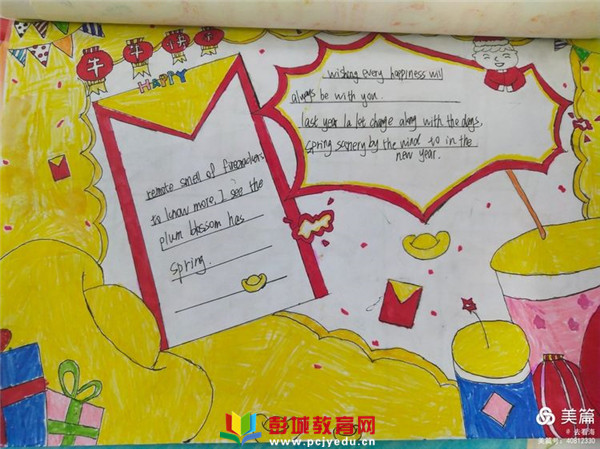 牛牛快牛
HAPPY
wishing every happiness will
always be with you.
last year la let change along with the days,
spring scenery by the wind to in the
new year.
remote smell of firecrackers
to know more, I see the
plum blossom has
spring.
彭城教育网
www.pcjyedu.cn
美篇
去看海
美篇号: 40812330